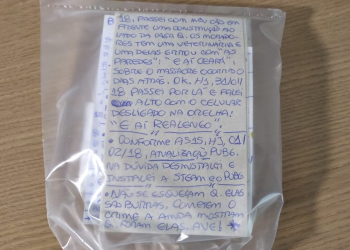 18, PASSEI COM MEU CÃO EM
FRENTE UMA CONSTRUÇÃO AO
LADO DA CASA Q. OS MORADO-
RES TÊM UMA VETERINÁRIA E
UMA DELAS GRITOU COM AS
PAREDES: "E AÍ CEARÁ",
SOBRE O MASSACRE OCORRIDO
DIAS ATRÁS. OK. HJ, 31/01/
18 PASSEI POR LÁ E FALEI
ALTO COM O CELULAR
DESLIGADO NA ORELHA:
"E AÍ REALENGO".
• CONFORME A515, HJ, 01/
02/18, ATUALIZAÇÃO PUBG.
NA DÚVIDA DESINSTALEI E
INSTALEI A STEAM E O PUBG
• NÃO SE ESQUEÇAM Q. ELAS
SÃO BURRAS. COMETEM O
CRIME E AINDA MOSTRAM
Q. FORAM ELAS. AVE!